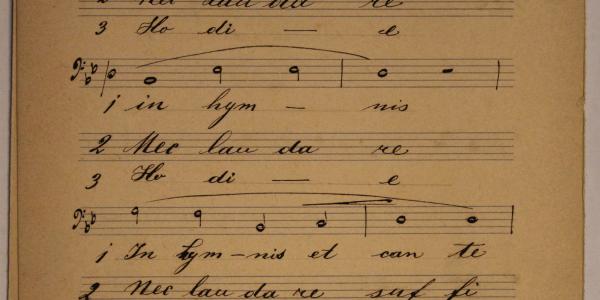 2 Nec lau da re
3 Ho di — e
1 in hym — nis
2 Nec lau da re
3 Ho di — e
1 In hym – nis et can te
2 Nec lau da re suf fi